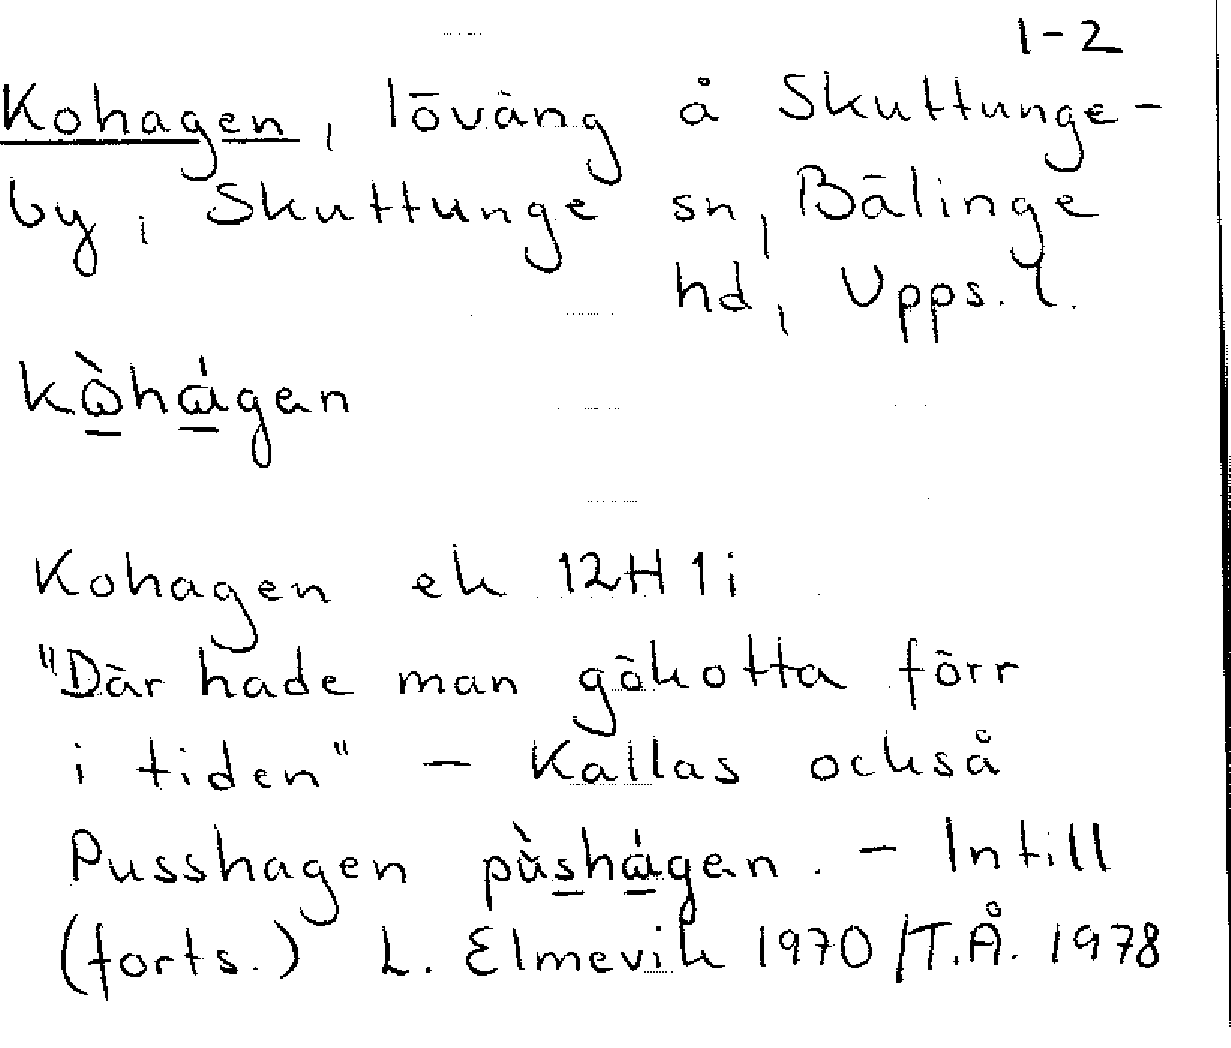 1-2
Kohagen, löväng å Skuttunge-
by, Skuttunge sn, Bälinge
hd, Upps. l.
kὼhágen
Kohagen ek 12H 1i
"Där hade man gökotta förr
i tiden" - Kallas också
Pusshagen pùshágen. - Intill
(forts.) L. Elmevik 1970/T.Å. 1978